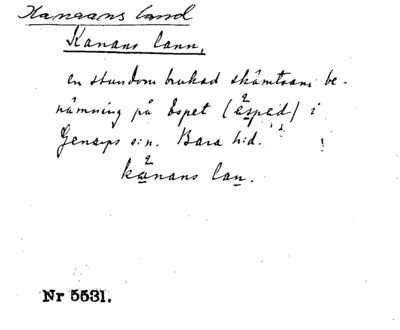 Kanaans land
Kanans lann,
en stundom brukad skämtsam be-
nämning på Espet (esped) i
Genarps s:n. Bara h:d.
kanans lan.
Nr 5531.